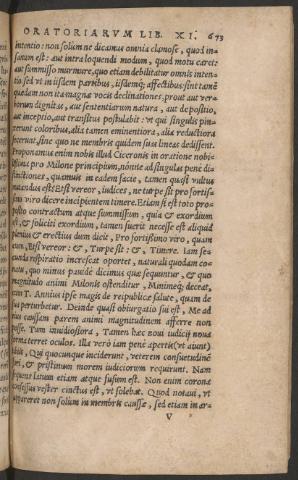 ORATORIARVM LIB. XI. 673
intentio: non solum ne dicamus omnia clamose, quod in-
sanum est: aut intra loquendi modum, quod motu caret:
aut summisso murmure, quo etiam debilitatur omnis inten-
tio: sed vt in iisdem partibus, iisdemq́; affectibus sint tamē
quædam non ita magnæ vocis declinationes, prout aut ver-
borum dignitas, aut sententiarum natura, aut de positio,
aut inceptio, aut transitus postulabit: vt qui singulis pin-
xerunt coloribus, alia tamen eminentiora, alia reductiora
fecerunt, sine quo ne membris quidem suas lineas dedissent.
Proponamus enim nobis illud Ciceronis in oratione nobi-
lissima pro Milone principium, nónne ad singulas penè di-
stinctiones, quamuis in eadem facie, tamen quasi vultus
mutandus est? Etsi vereor, iudices, ne turpe sit pro fortis-
simo viro dicere incipientem timere. Etiam si est toto pro-
posito contractum atque summissum, quia & exordium
est, & soliciti exordium, tamen fuerit necesse est aliquid
plenius & erectius dum dicit, Pro fortissimo viro, quàm
cùm, Etsi vereor: &, Turpe sit: &, Timere. Iam se-
cunda respiratio increscat oportet, naturali quodam co-
natu, quo minus pauidè dicimus quæ sequuntur, & quo
magnitudo animi Milonis ostenditur, Minimeq́; deceat,
cùm T. Annius ipse magis de reipublicæ salute, quàm de
sua perturbetur. Deinde quasi obiurgatio sui est, Me ad
eius caussam parem animi magnitudinem afferre non
posse. Tum inuidiosiora, Tamen hæc noui iudicii noua
forma terret oculos. Illa verò iam penè apertis (vt aiunt)
tibiis, Qui quocunque inciderunt, veterem consuetudinē
fori, & pristinum morem iudiciorum requirunt. Nam
sequens latum etiam atque fusum est. Non enim corona
consessus vester cinctus est, vt solebat. Quod notaui, vt
appareret non solum in membris caussæ, sed etiam in ar-
V